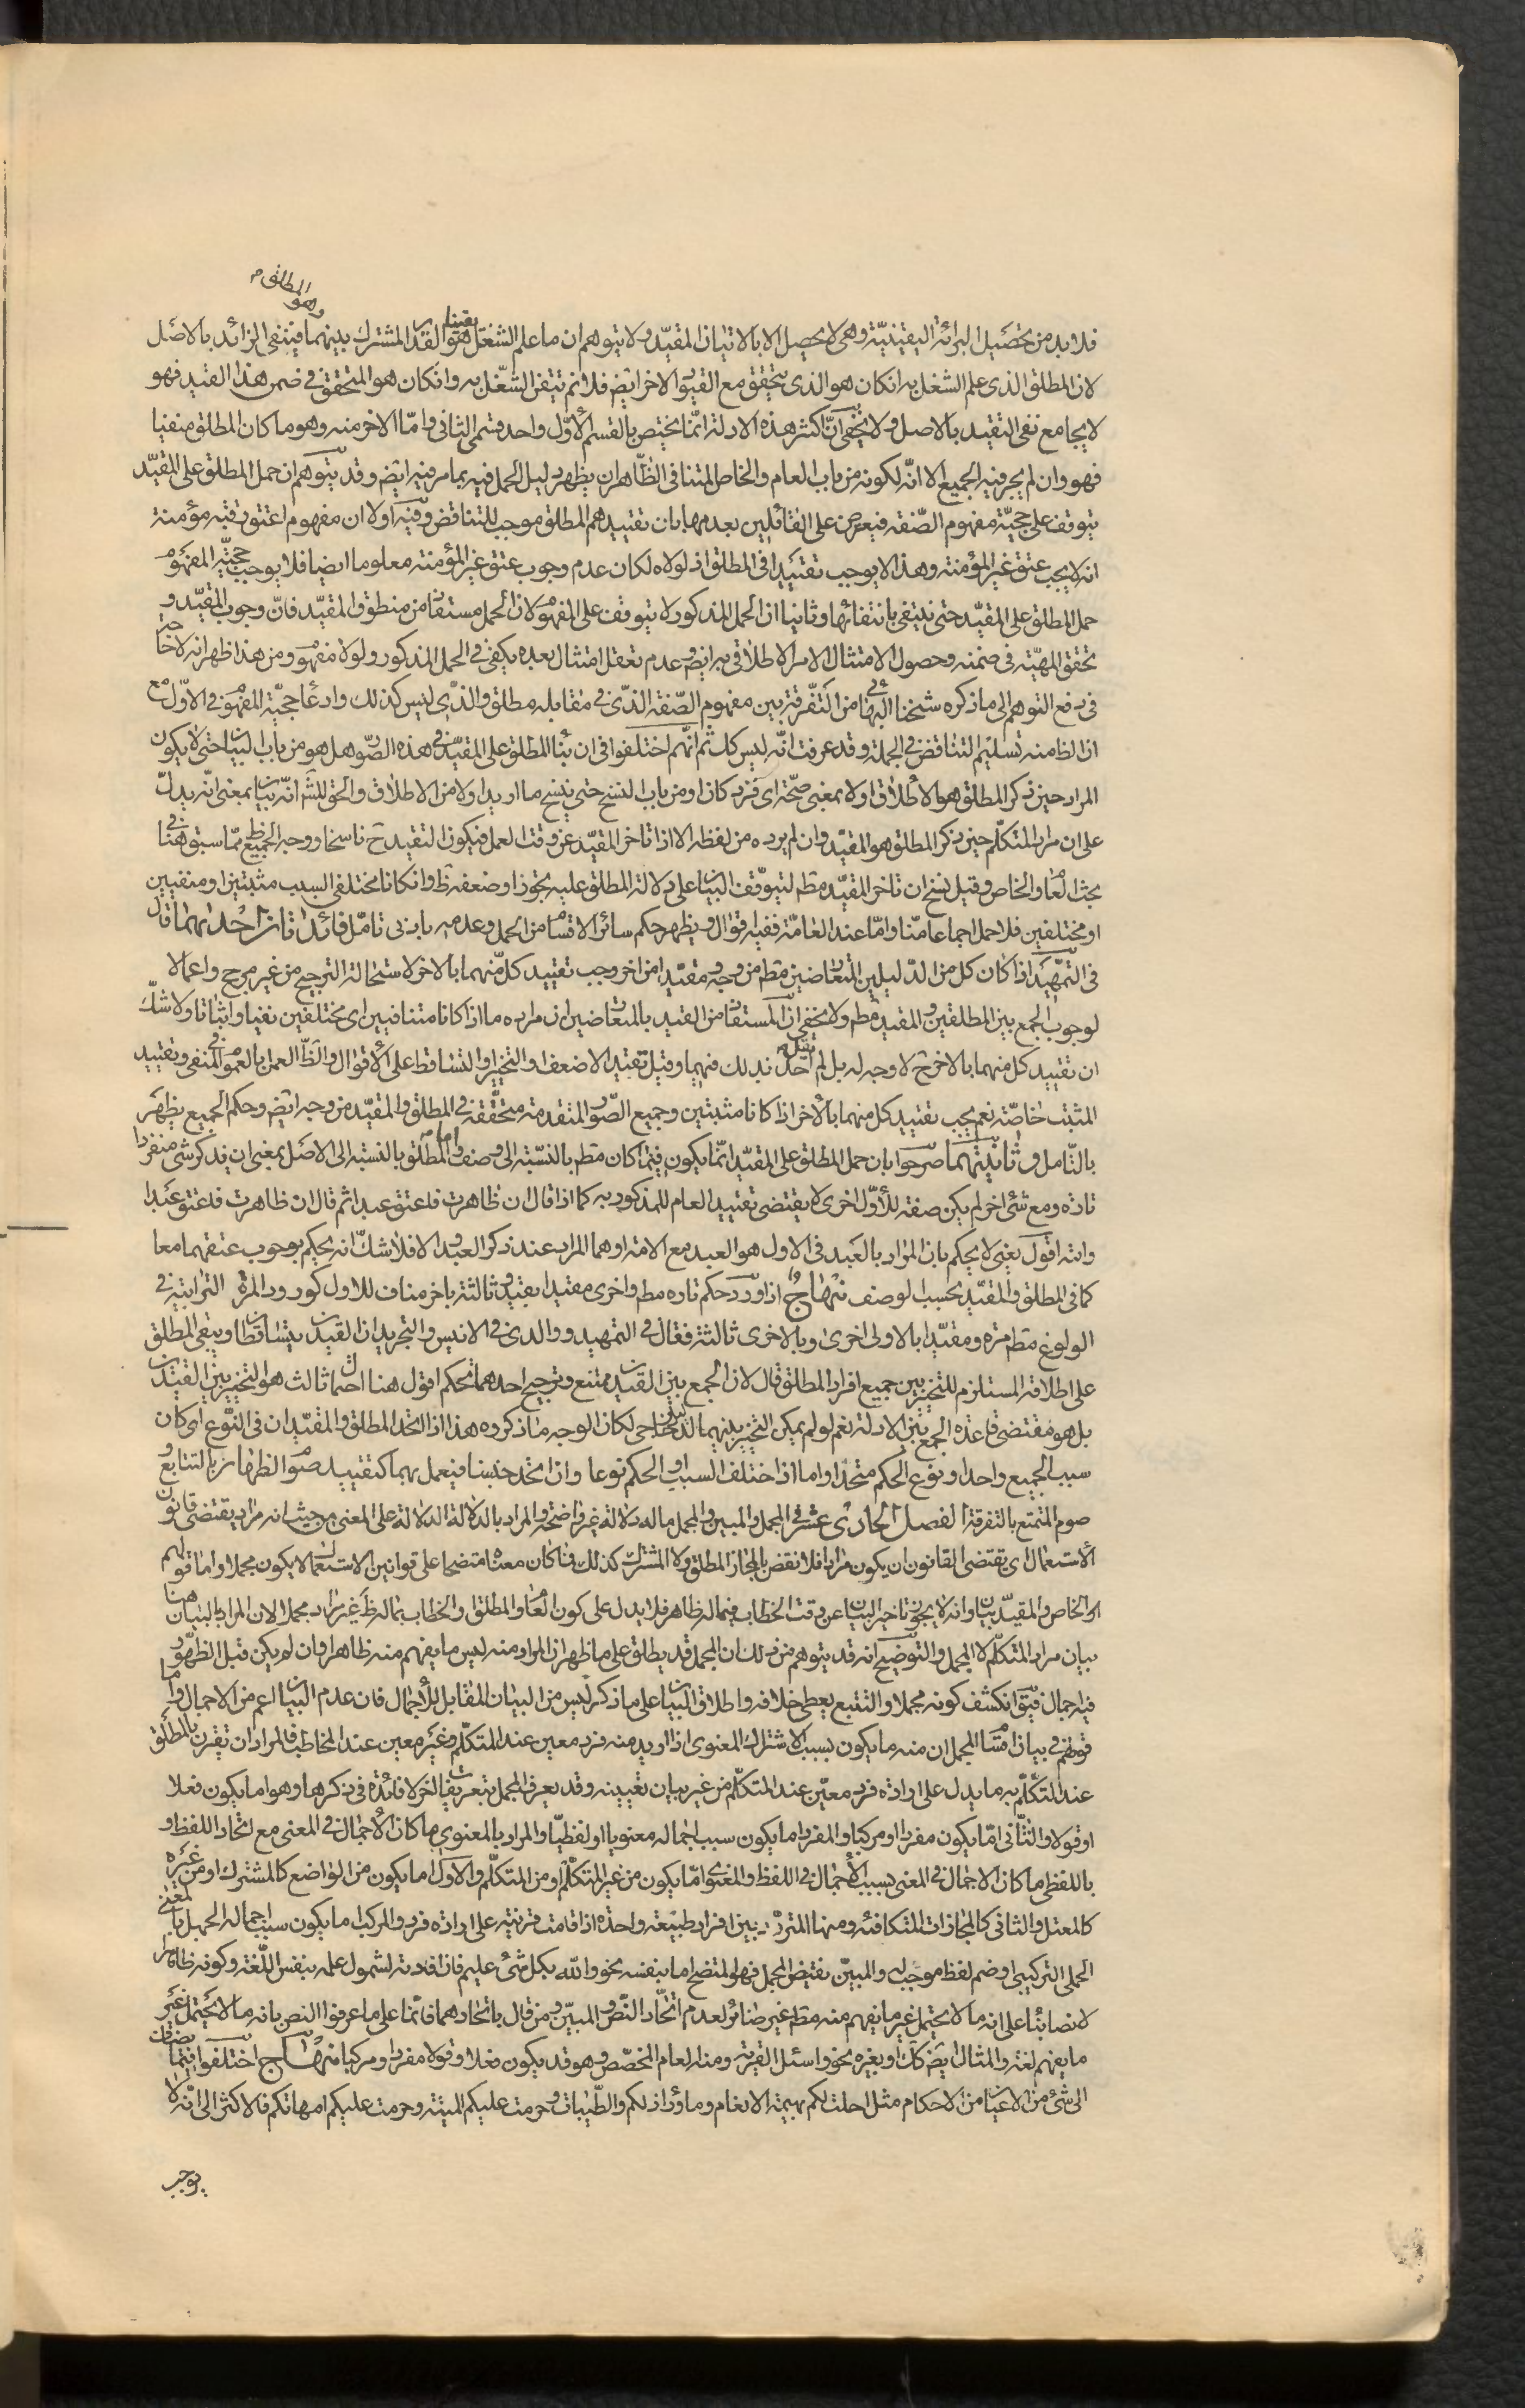 وهو المطلق م
فلا بد من تحصيل البرائة اليقينيّة وهى لا يحصل الا بالاتيان بالمقيّد ولا يتوهم ان ما علم الشغل به يقينا هو القدر المشترك بينهما فينتفى الزائد بالاصل
لان المطلق الذى علم الشغل به ان كان هو الذى يتحقق مع القيود الاخر ايض فلا نم تيقن الشّغل به وان كان هو المتحقق فى ضمن هذا القيد فهو
لا يجامع نفى التقييد بالاصل ولا يخفى انّ اكثر هذه الادلة انّما يختص بالقسم الأوّل واحد قسمى الثانى وامّا الاخر منه وهو ما كان المطلق منفيا
فهو وان لم يجر فيه الجميع الا انّه لكونه من باب العام والخاص المتنافى الظّاهر ان يظهر دليل الحمل فيه بما مر فيه ايض وقد يتوهم ان حمل المطلق على المقيّد
يتوقف على حجيّة مفهوم الصّفة فيعرض على القائلين بعدمها بان تقييدهم المطلق موجب للتناقض وفيه اولا ان مفهوم اعتق رقبة مؤمنة
انه لا يجب عتق غير المؤمنة وهذا لا يوجب تقييدا فى المطلق اذ لولاه لكان عدم وجوب عتق غير المؤمنة معلوما ايضا فلا يوجب حجيّة المفهوم
حمل المطلق على المقيّد حتى ينتفى بانتفائها وثانيا ان الحمل المذكور لا يتوقف على المفهوم لان الحمل مستفاد من منطوق المقيّد فانّ وجوب المقيّد و
تحقق المهيّة فى ضمنه وحصول الامتثال الامر الاطلاقى به ايض وعدم تعقل امتثال بعده يكفى فى الحمل المذكور ولو لا مفهوم ومن هذا ظهر انه لا حاجة
فى دفع التوهم الى ما ذكره شيخنا البهائى من التّفرقة بين مفهوم الصّفة الذى فى مقابله مطلق والذى ليس كذلك وادعا حجيّة المفهوم فى الاوّل مع
ان الظ منه تسليم التناقض فى الجملة وقد عرفت انّه ليس كك ثم انّهم اختلفوا فى ان بنا المطلق على المقيّد فى هذه الصّور هل هو من باب البيان حتى لا يكون
المراد حين ذكر المطلق هو الاطلاق اولا بمعنى صحّة اى فرد كان او من باب النسخ حتى ينسخ ما اريد اولا من الاطلاق والحق للشّه انّه بيان بمعنى انّه يدلّ
على ان مراد المتكلّم حين ذكر المطلق هو المقيّد وان لم يرده من لفظه الا اذا تاخر المقيّد عن وقت العمل فيكون التقييد ح ناسخا ووجه الجميع ظ ممّا سبق هنا فى
بحث العام والخاص وقيل نسخ ان تاخر المقيّد مطم لتوقّف البيان على دلالة المطلق عليه تجوزا وضعفه ظ وان كانا مختلفى السبب مثبتين او منفيين
او مختلفين فلا حمل اجماعا منّا وامّا عند العامّة ففيه اقوال ويظهر حكم سائر الاقسام من الحمل وعدمه بادنى تامّل فائدتان احديهما قال
فى التمهيد اذا كان كل من الدّليلين المتعارضين مطم من وجه ومقيّدا من اخر وجب تقييد كلّ منهما بالاخر لاستحالة الترجيح من غير مرجح واعمالا
لوجوب الجمع بين المطلقين والمقيد مطم ولا يخفى ان المستفاد من القيد بالمتعارضين ان مراده ما اذا كانا متنافيين اى مختلفين نفيا واثباتا ولا شكّ
ان تقييد كل منهما بالاخر ح لا وجه له بل لم يقل احد بذلك فيهما وقيل تقييد الاضعف او التخيير او التساقط على الاقوال والظّ العمل بالعموم فى المنفى وتقييد
المثبت خاصّة نعم يجب تقييد كل منهما بالاخر اذا كانا مثبتين وجميع الصّور المتقدمة متحقّقة فى المطلق والمقيّد من وجه ايض وحكم الجميع يظهر
بالتّامل وثانيتهما صرحوا بان حمل المطلق على المقيّد انّما يكون فيما كان مطم بالنسبة الى وصف واما المطلق بالنسبة الى الاصل بمعنى ان يذكر شئ منفردا
تارة ومع شئ اخر لم يكن صفة للأوّل اخرى لا يقتضى تقييد العام للمذكور به كما اذا قال ان ظاهرت فاعتق عبدا ثم قال ان ظاهرت فاعتق عبدا
وامة اقول يعنى لا يحكم بان المراد بالعبد فى الاول هو العبد مع الامة او هما المراد عند ذكر العبد والا فلا شكّ انه يحكم بوجوب عتقهما معا
كما فى المطلق والمقيّد بحسب الوصف منهاج اذا ورد حكم تارة مطم واخرى مقيدا بقيد وثالثة باخر مناف للاول كورود المرة الترابية فى
الولوغ مطم مرة ومقيّدا بالاولى اخرى وبالاخرى ثالثة فقال فى التمهيد ووالدى فى الانيس والتجريد ان القيدين يتساقطان ويبقى المطلق
على اطلاقه المستلزم للتخيير بين جميع افراد المطلق قال لان الجمع بين القيدين ممتنع وترجيح احدهما تحكم اقول هنا احتمال ثالث هو التخيير بين القيدين
بل هو مقتضى قاعدة الجمع بين الادلة نعم لو لم يمكن التخيير بينهما لدليل خارجى لكان الوجه ما ذكروه هذا اذا اتحد المطلق والمقيّدان فى النّوع اى كان
سبب الجميع واحدا ونوع الحكم متحدا واما اذا اختلف السبب او الحكم نوعا وان اتحد جنسا فيعمل بهما كتقييد صوم الظهار بالتتابع و
صوم المتمتع بالتفرقة الفصل الحادى عشر فى المجمل والمبين والمجمل ماله دلالة غير واضحة والمراد بالدلالة الدلالة على المعنى من حيث انه مراد يقتضى قانون
الاستعمال اى يقتضى القانون ان يكون مرادا فلا نقض بالمجاز المطلق ولا المشترك كذلك فما كان معناه متضحا على قوانين الاستعمال لا يكون مجملا واما قولهم
ان الخاص والمقيّد بيان وانه لا يجوز تاخير البيان عن وقت الخطاب فيما له ظاهر فلا يدل على كون العام والمطلق والخطاب بماله ظ غير مراد مجملا لان المراد بالبيان هنا
بيان مراد المتكلّم لا المجمل والتوضيح انه قد يتوهم من ذلك ان المجمل قد يطلق على ما ظهر ان المراد منه ليس ما يفهم منه ظاهرا وان لم يكن قبل الظهور
فيه اجمال فيق انكشف كونه مجملا والتتبع يعطى خلافه واطلاق البيان على ما ذكر ليس من البيان المقابل للأجمال فان عدم البيان اعم من الاجمال واما
قولهم فى بيان اقسام المجمل ان منه ما يكون بسبب الاشتراك المعنوى اذا اريد منه فرد معين عند المتكلّم وغير معين عند المخاطب فالمراد ان تقترن بالمطلق
عند المتكلّم به ما يدل على ارادة فرد معيّن عند المتكلّم من غير بيان تعيينه وقد يعرف المجمل بتعريفات اخر لا فائدة فى ذكرها وهو اما يكون فعلا
او قولا والثّانى امّا يكون مفردا او مركبا والمفرد اما يكون سبب اجماله معنويا او لفظيّا والمراد بالمعنوى ما كان الأجمال فى المعنى مع اتحاد اللفظ و
باللفظى ما كان الاجمال فى المعنى بسبب الأجمال فى اللفظ والمعنوى امّا يكون من غير المتكلّم او من المتكلّم والاوّل اما يكون من الواضع كالمشترك او من غيره
كالمعتل والثانى كالمجازات المتكافئة ومنها المتردّد بين افراد طبيعة واحدة اذا قامت قرينة على ارادة فرد والمركب اما يكون سبب اجماله الحمل بالمعنى
الحملى التركيبى او ضم لفظ موجب له والمبيّن نقيض المجمل فهو المتضح اما بنفسه نحو والله بكل شئ عليم فان افادته لشمول علمه بنفس اللّغة وكونه ظاهرا
لا نصا بنا على انه ما لا يحتمل غير ما يفهم منه مطم غير ضائر لعدم اتّحاد النّص والمبيّن ومن قال باتحادهما فانّما على ما عرفوا النص بانه ما لا يحتمل غير
ما يفهم لغة والمثال ايض كك او بغيره نحو واسئل القرية ومنه العام المخصّص وهو قد يكون فعلا وقولا مفردا ومركبا منهاج اختلفوا فيما يضاف
الى شئ من الاعيان من الاحكام مثل احلت لكم بهيمة الانعام وماوراء ذلكم والطّيبات وحرمت عليكم الميتة وحرمت عليكم امهاتكم فالاكثر الى انّه لا
يوجب